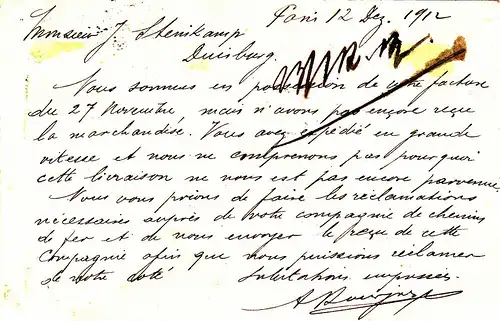 Monsieur J. Steinkamp Paris 12 Dez. 1912
Duisburg.
Nous sommes en possession de votre facture
du 27 Novembre, mais n'avons pas encore reçu
la marchandise. Vous avez expédié en grande
vitesse et nous ne comprenons pas pourquoi
cette livraison ne nous est pas encore parvenue.
Nous vous prions de faire les réclamations
nécessaires auprès de votre compagnie de chemins
de fer et de nous envoyer le reçu de cette
Compagnie afin que nous puissions réclamer
de votre coté